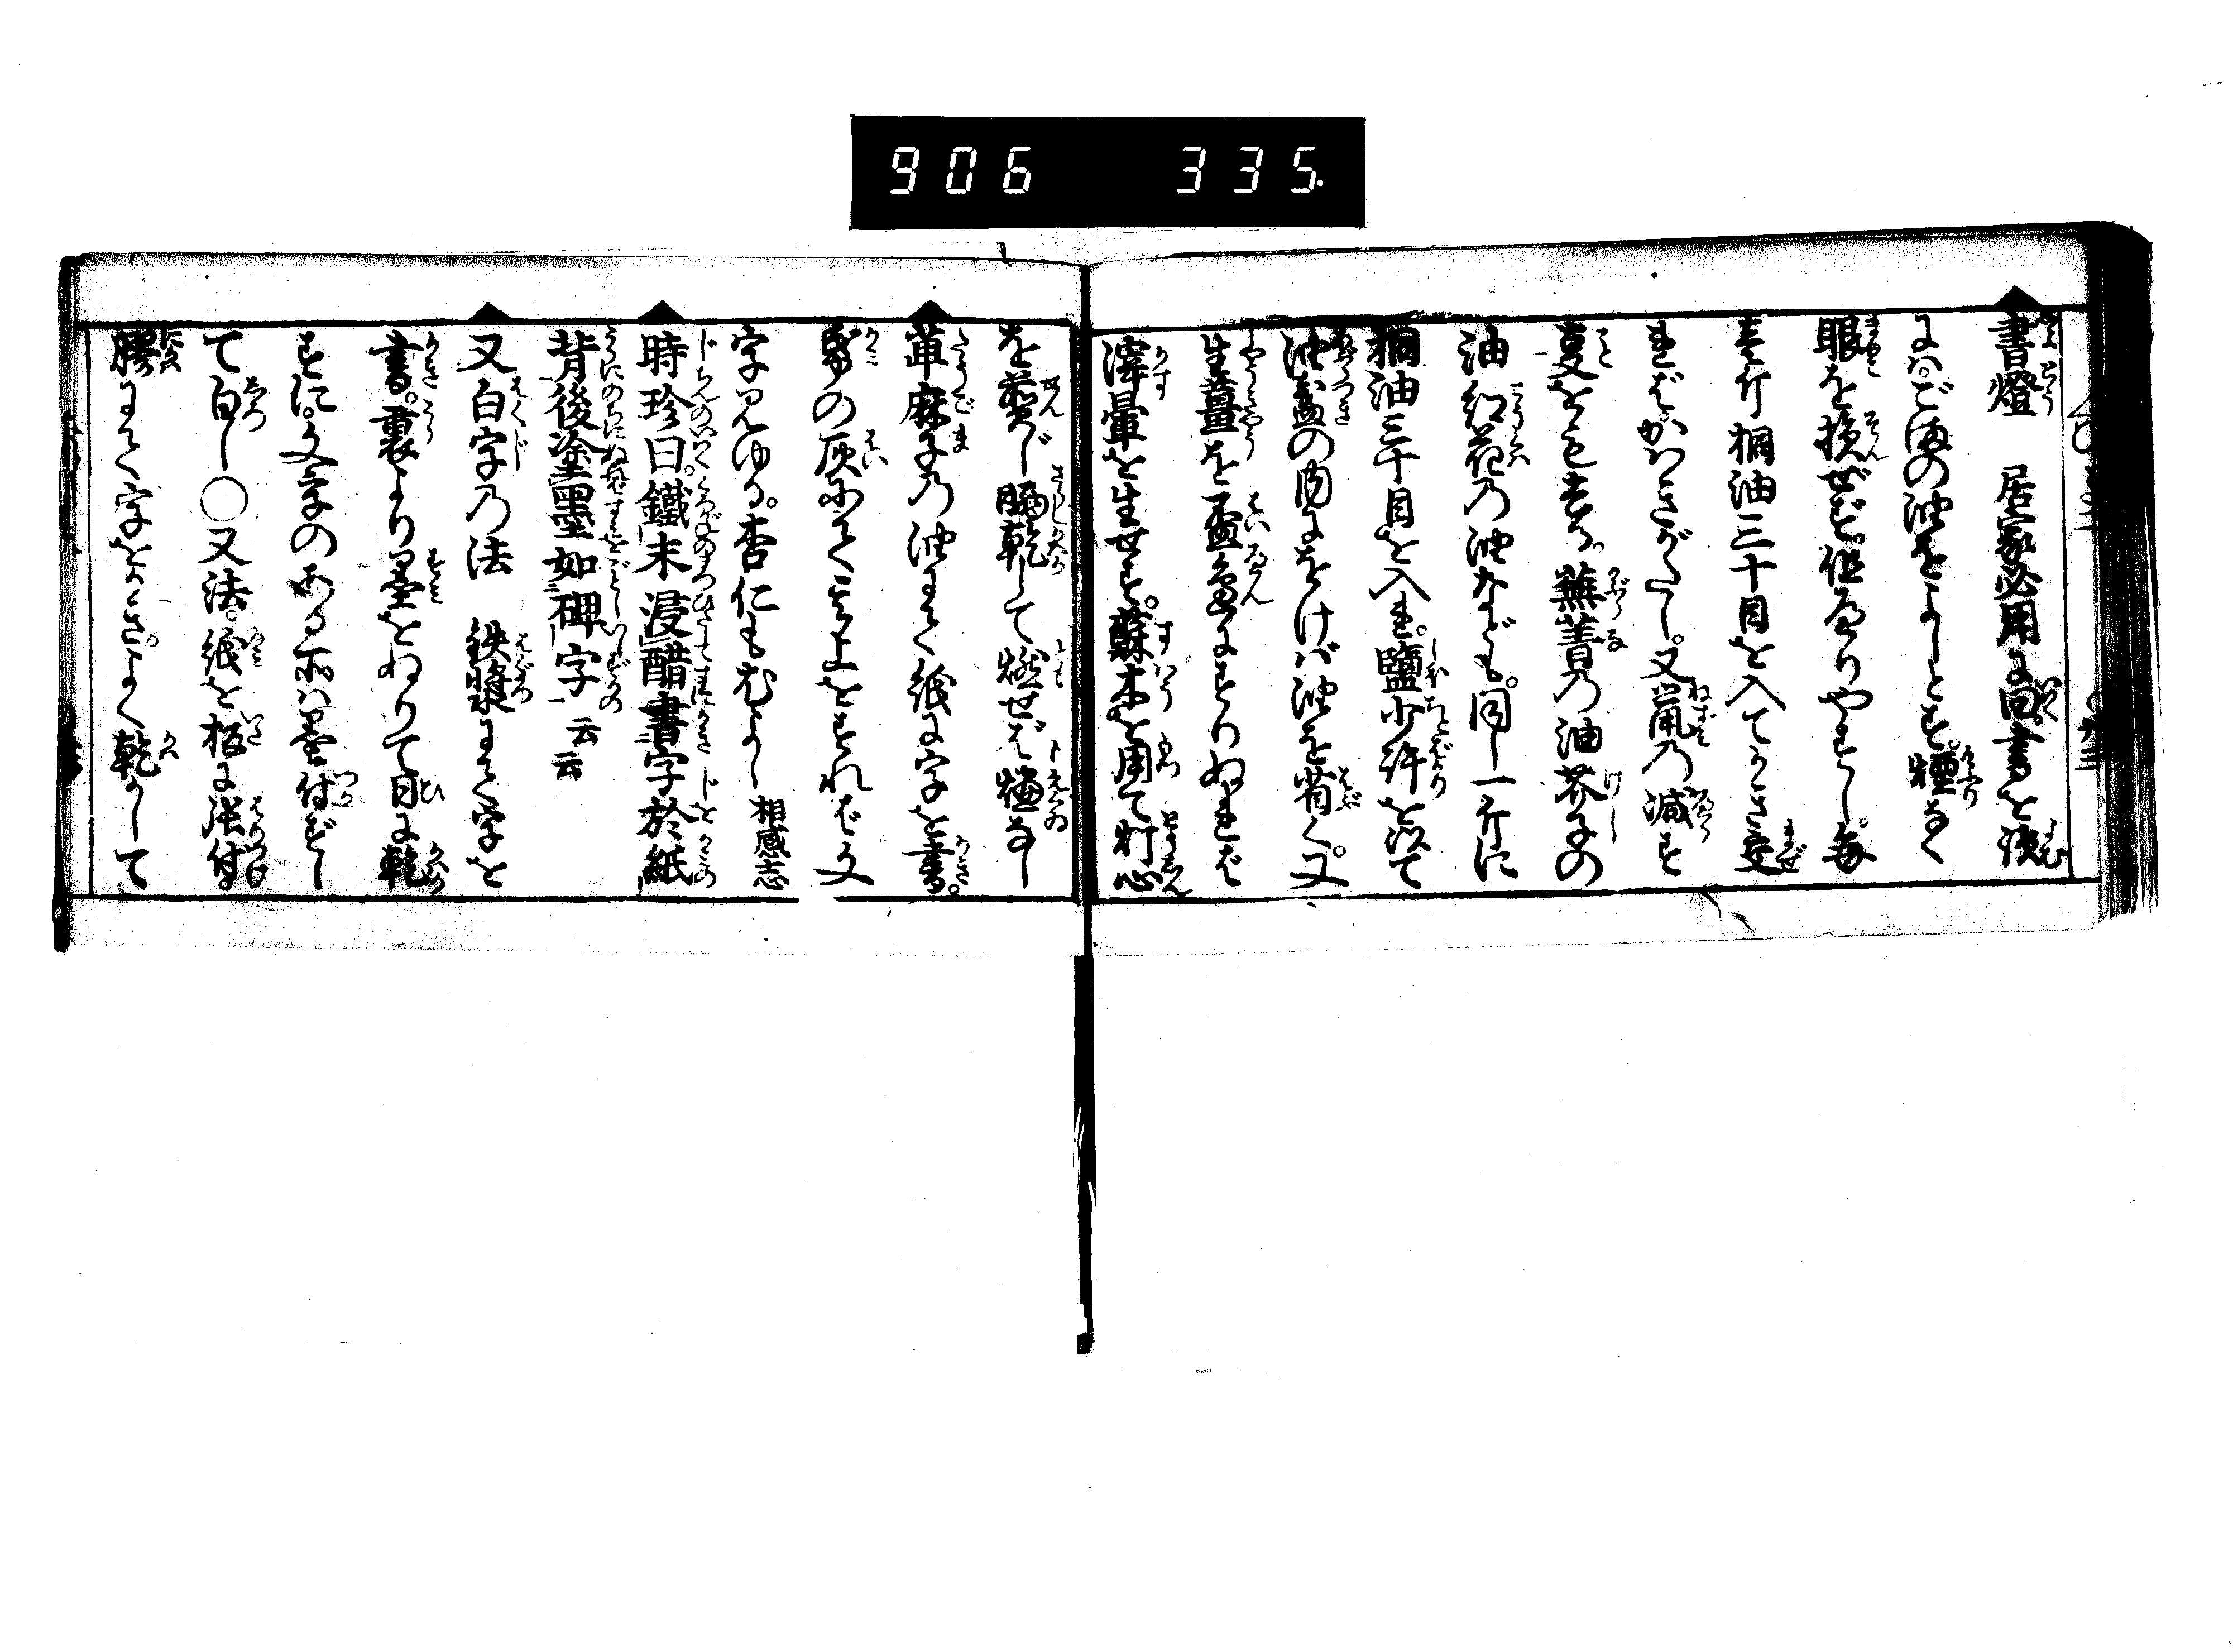 906 335.
書燈 居家必用に曰書を読
には。ごまの油をよしとす。煙なく
眼を損ぜず。但へりやすし。毎
壱斤桐油三十目を入てかき交
ればかハきがたし。又鼠乃減す
事をも去る。蕪菁乃油芥子の
油紅花乃油なども。同し一斤に
桐油三十目を入れ。鹽少許を以て
油盞の内にをけば油を省く。又
生薑を盞邊にすりぬれば
滓暈を生ぜす。蘇木を用て灯心
を煎じ晒乾して燃せば燼なし
萆麻子乃油にて紙に字を書。
紙の灰にて其上をすれば文
字見ゆる。杏仁もむよし 相感志
時珍曰。鐵末浸醋書字於紙
背後塗墨如碑字 云云
又白字乃法 鉄漿にて字を
書。裏より墨をぬりて日に乾
すに。文字のある所ハ墨付ずし
て白し〇又法。紙を板に張付。
膠にて字をかき。よく乾かして